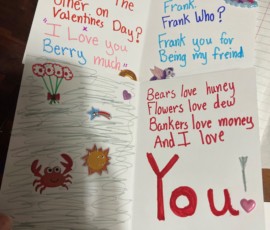 Other on the
Valentines Day?
"I Love you
Berry much."
Frank.
Frank Who?
Frank you for
Being my freind
Bears love huney
Flowers love dew
Bankers love money
And I love
You